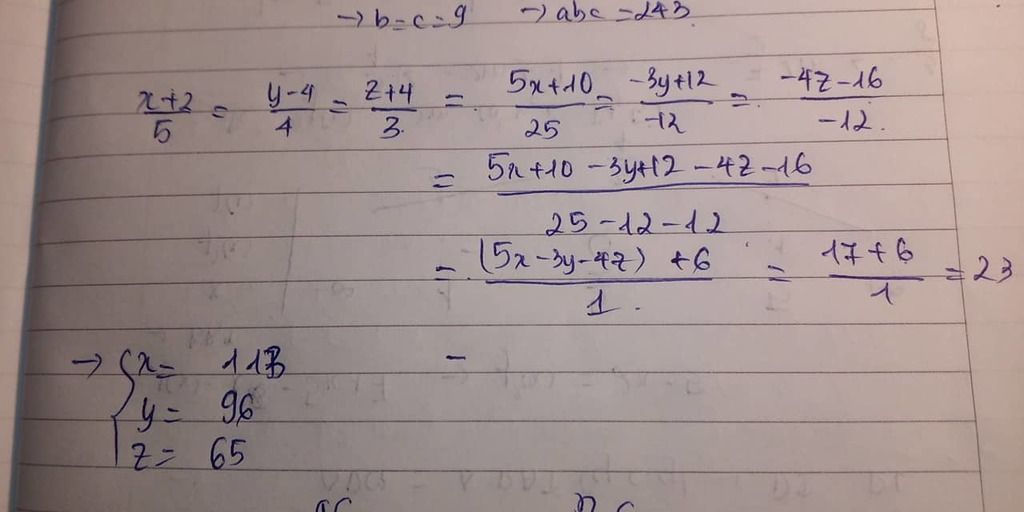 → b=c=9 → abc = 243
x+2/5 = y-4/4 = z+4/3 = 5x+10/25 = -3y+12/-12 = -4z-16/-12
= 5x+10-3y+12-4z-16/25-12-12
= (5x-3y-4z)+6/1 = 17+6/1 = 23
→ { x = 113
y = 96
z = 65